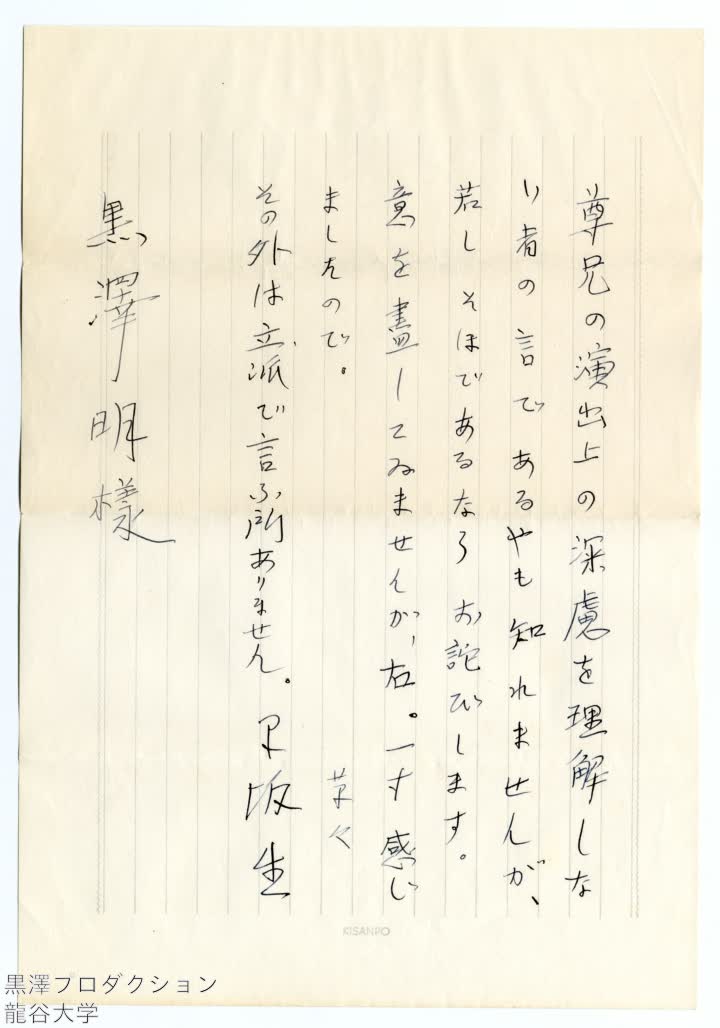 尊兄の演出上の深慮を理解しな
い者の言であるやも知れませんが、
若しそほであるなら お詫びします。
意を盡してゐませんが、右。一寸感じ
ましたので。 草々
その外は立派で言ふ所ありません。 早坂生
黒澤明樣
KISANPO
黒澤プロダクション
龍谷大学